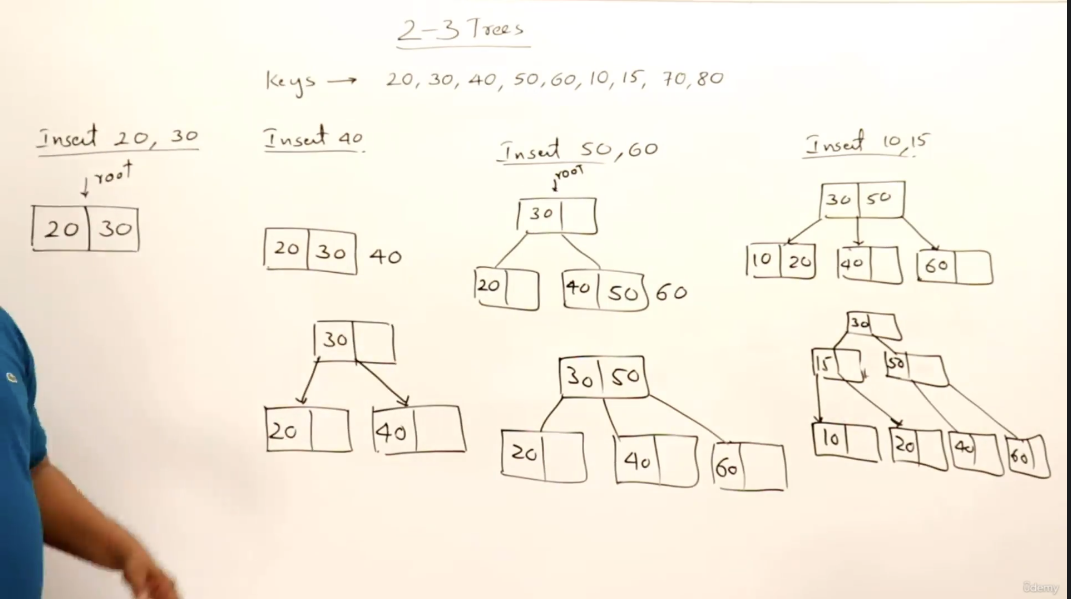 2-3 Trees
Keys → 20, 30, 40, 50, 60, 10, 15, 70, 80
Insert 20, 30
root
20 30
Insert 40
20 30 40
30
20 40
Insert 50, 60
root
30
20 40 50 60
30 50
20 40 60
Insert 10, 15
30 50
10 20 40 60
30
15 50
10 20 40 60
ûdemy